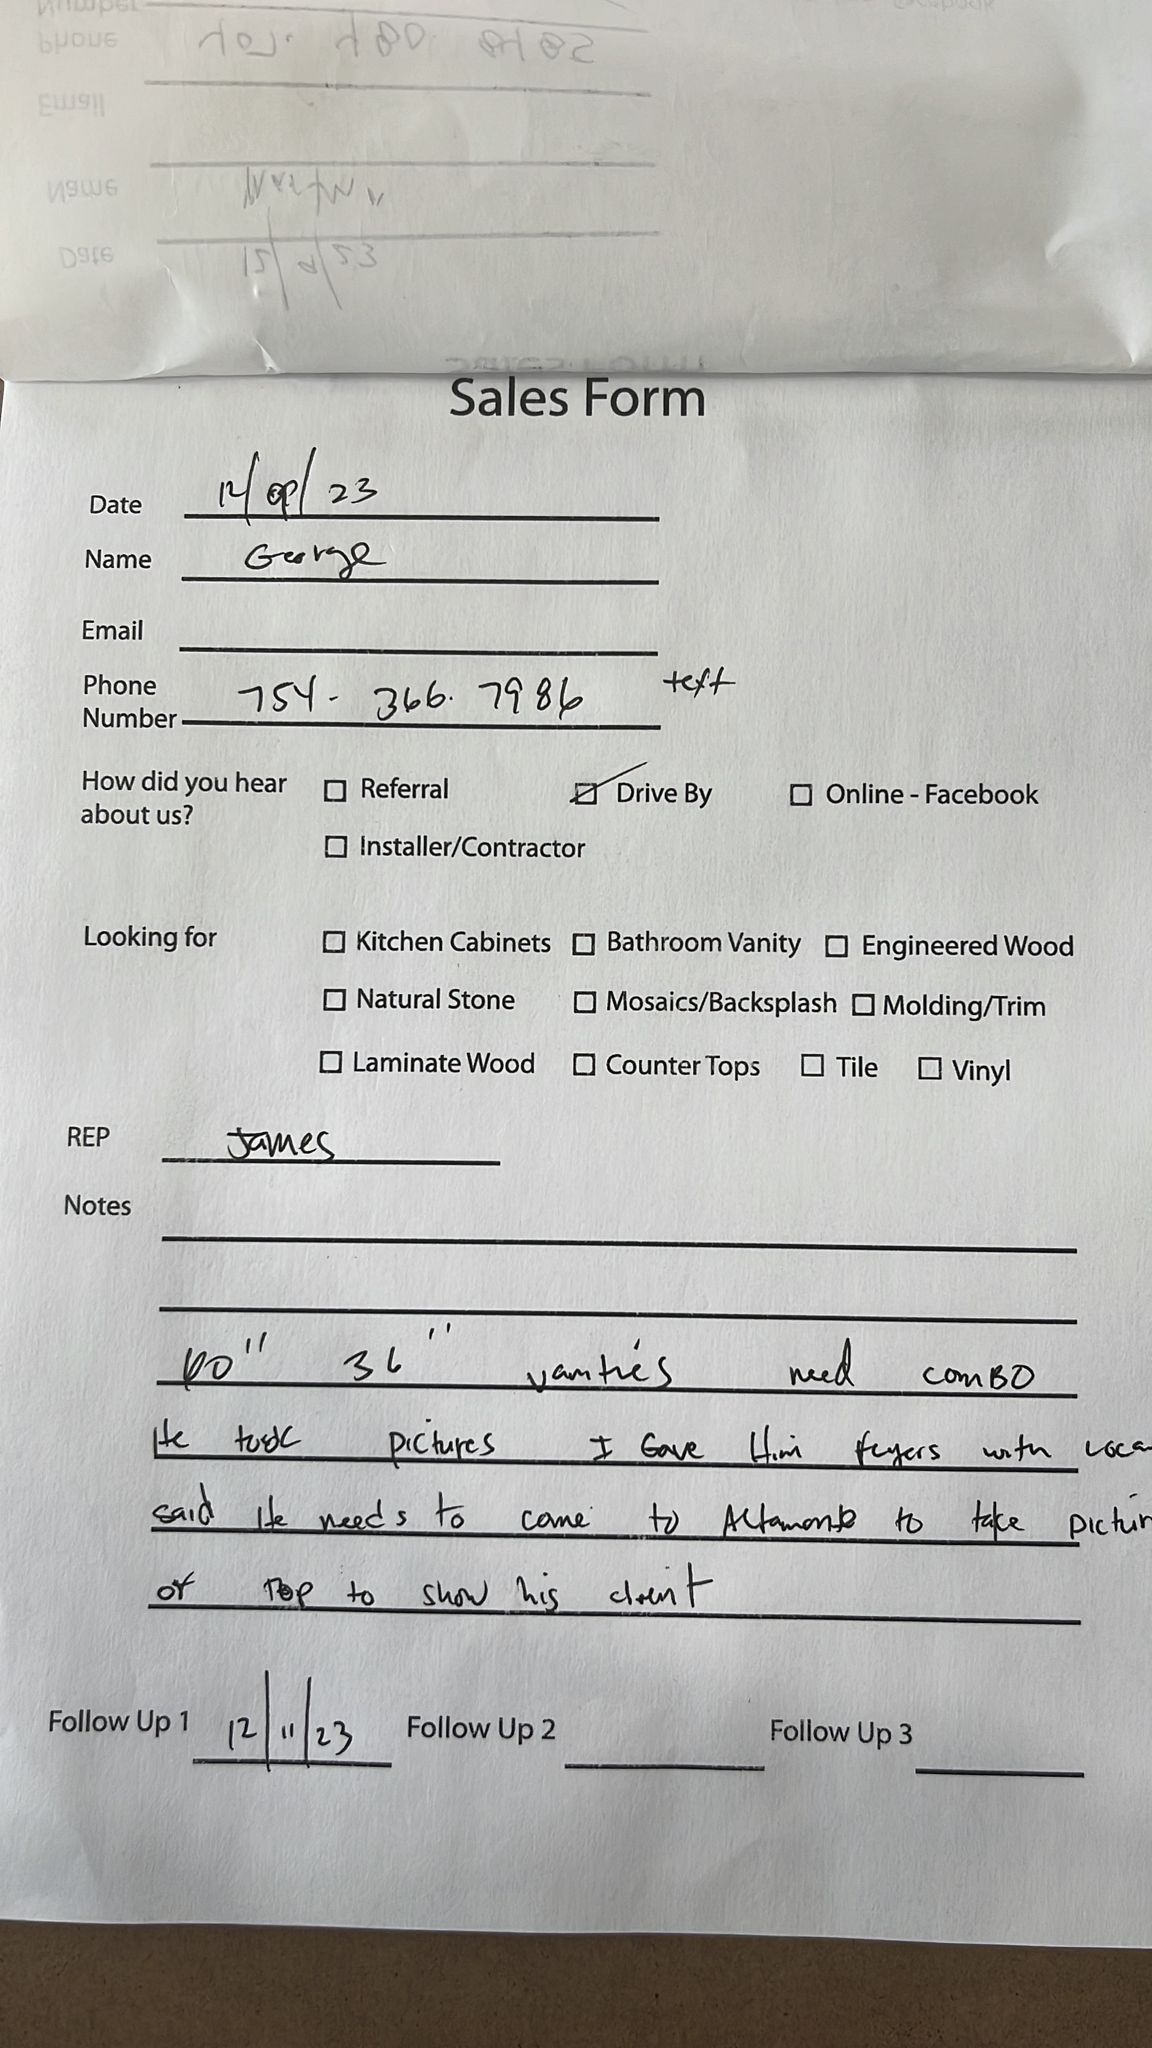 Sales Form
Date 12/09/23
Name George
Email
Phone Number 754-366.7986 text
How did you hear about us?
☐ Referral ☑ Drive By ☐ Online - Facebook
☐ Installer/Contractor
Looking for
☐ Kitchen Cabinets ☐ Bathroom Vanity ☐ Engineered Wood
☐ Natural Stone ☐ Mosaics/Backsplash ☐ Molding/Trim
☐ Laminate Wood ☐ Counter Tops ☐ Tile ☐ Vinyl
REP James
Notes
36" vanities need comBO
He took pictures I Gave Him flyers with
said He needs to come to Altamonte to take
of Top to show his client
Follow Up 1 12/11/23 Follow Up 2 Follow Up 3